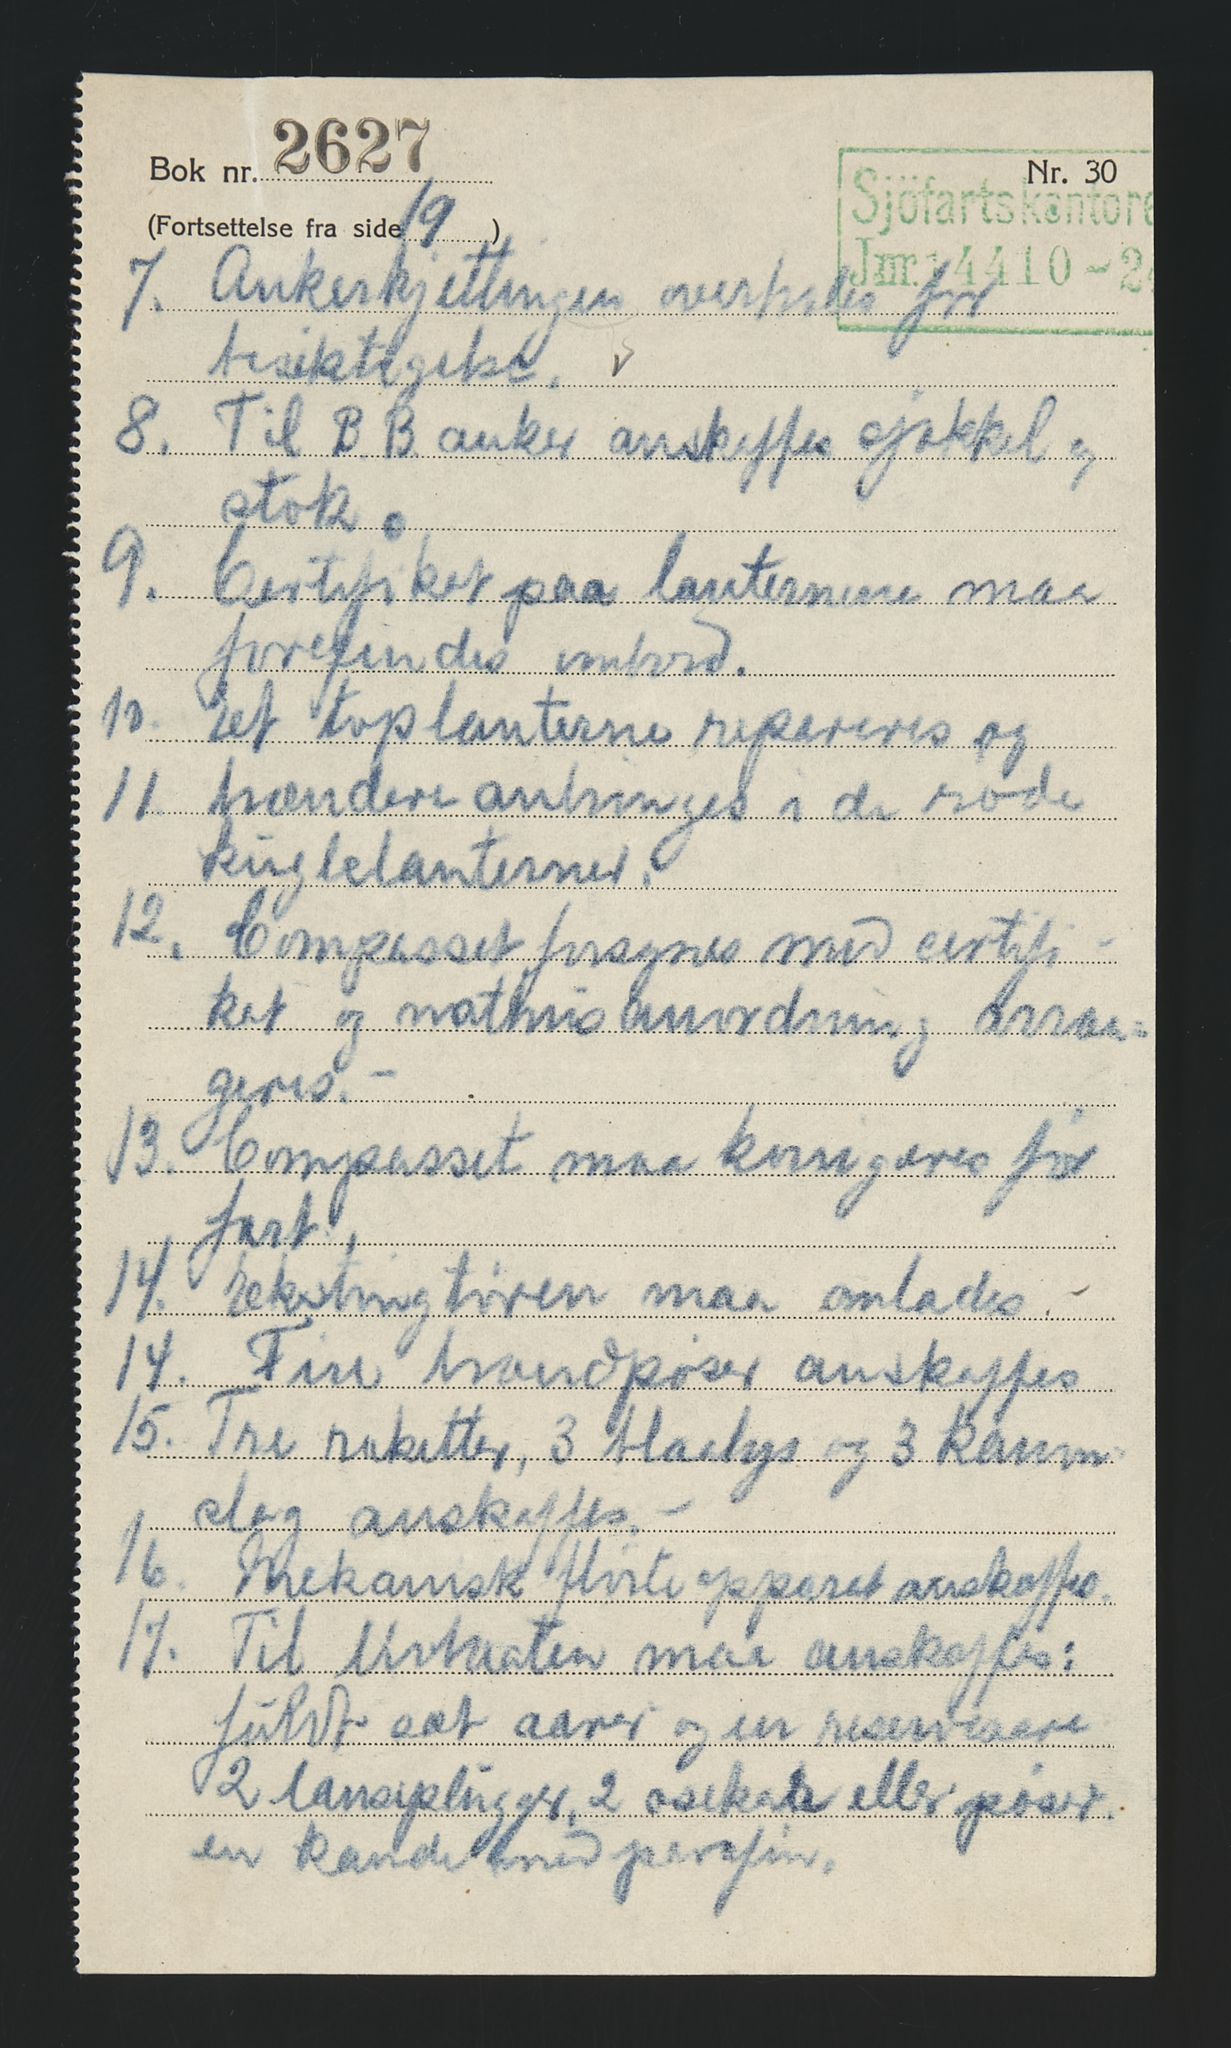 Bok nr. 2627
Nr. 30
Sjöfartskontore
Jnr. 4410-2
(Fortsettelse fra side 19)
7. Ankerkjettingen overhales for
besiktigelse.
8. Til B.B. anker anskaffes sjækkel og
stok.
9. Certifikat paa lanternene maa
forefindes ombord.
10. Et toplanterne repareres og
11. brændere anbringes i de røde
kuglelanterner.
12. Compasset forsynes med certifi-
kat og nathusanordning arran-
geres.-
13. Compasset maa korrigeres før
fart.
14. Ekstingtøren maa omlades.-
14. Fire brandpøser anskaffes
15. Tre raketter, 3 blaalys og 3 kanon-
slag anskaffes.-
16. Mekanisk fløiteapparat anskaffes.
17. Til livbaaten maa anskaffes:
fuldt sæt aarer og en reserveaare
2 lænseplugger, 2 øsekar eller pøser.
en kande med parafin.